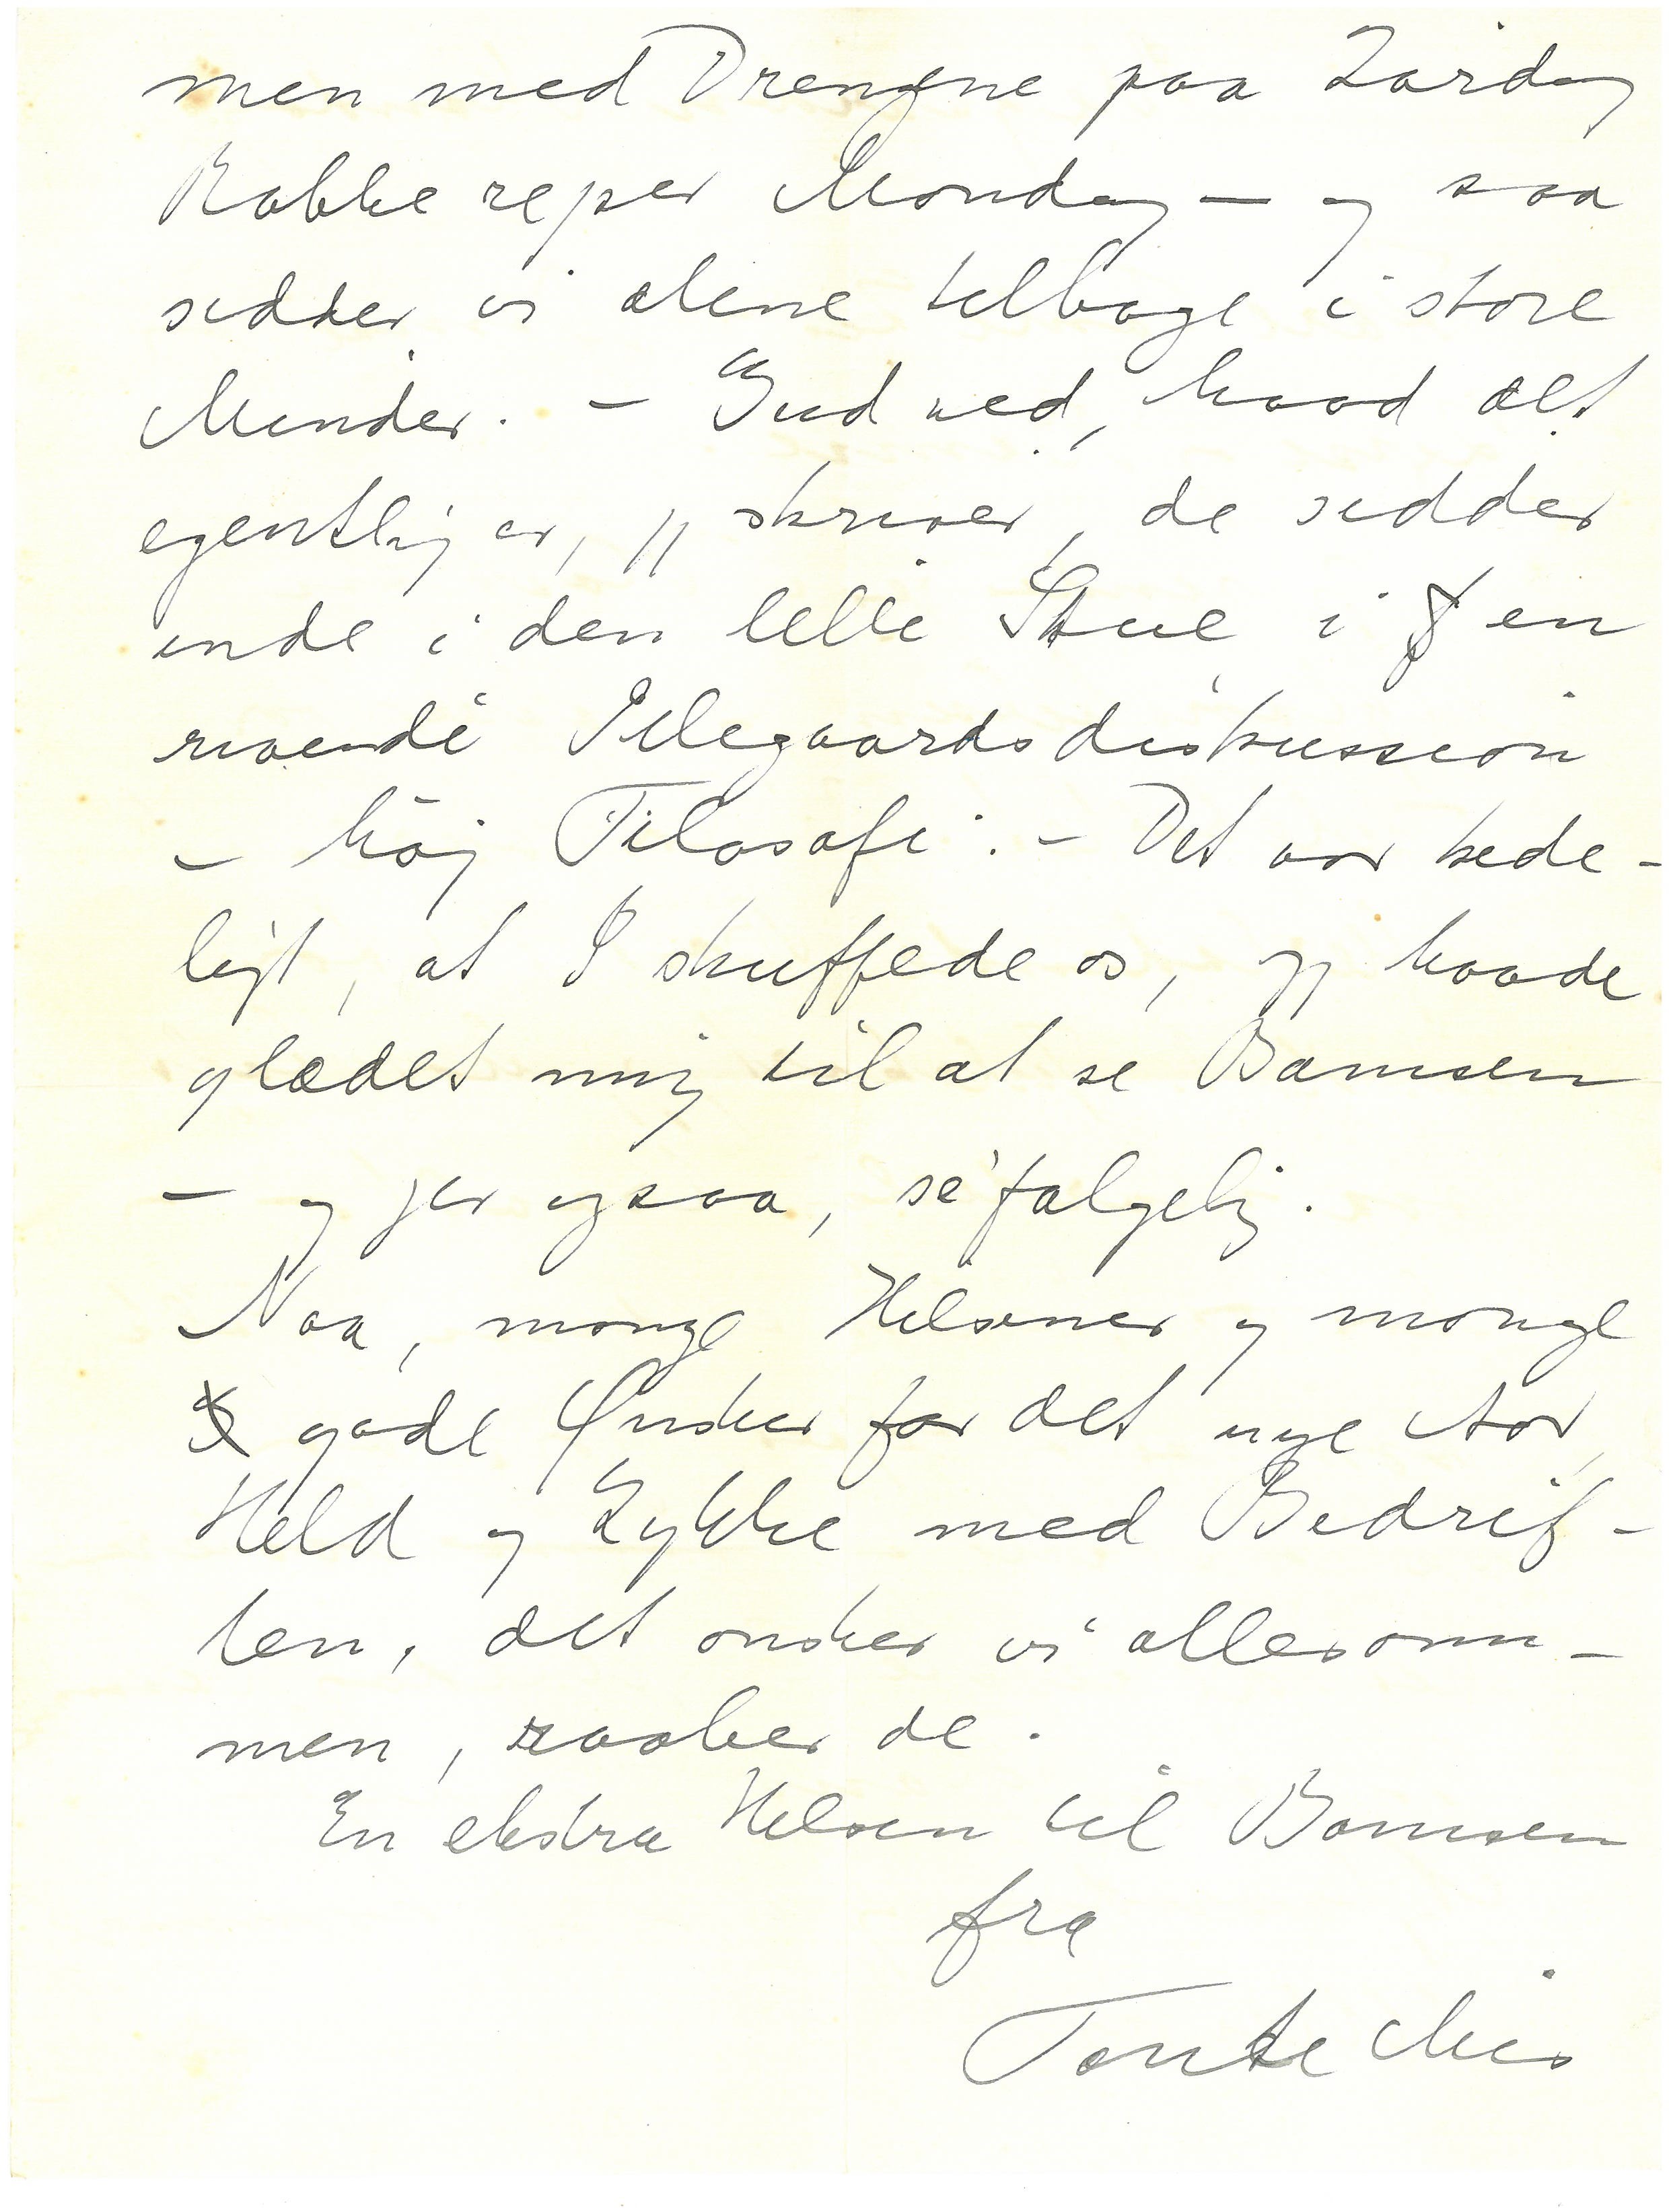 men med Drengene paa Lördag
Bakke rejser Mandag – og saa
sidder vi alene tilbage i store
Minder. – Gud ved, hvad alt
egentlig er, jj skriver, de sidder
inde i den lille Stue i en
rivende Pilegaardsdiskussion
– höj Filosofi. – Det var kede-
ligt, at I skuffede os, jj havde
glædet mig til at se Bamsen
– og jer ogsaa, sé'følgelig.
Naa, mange Hilsner og mange
gode Ønsker for det nye Aar,
Held og Lykke med Bedrif-
ten, det ønsker vi allesam-
men, raaber de.
En ekstra Hilsen til Bamsen
fra
Tante Mis